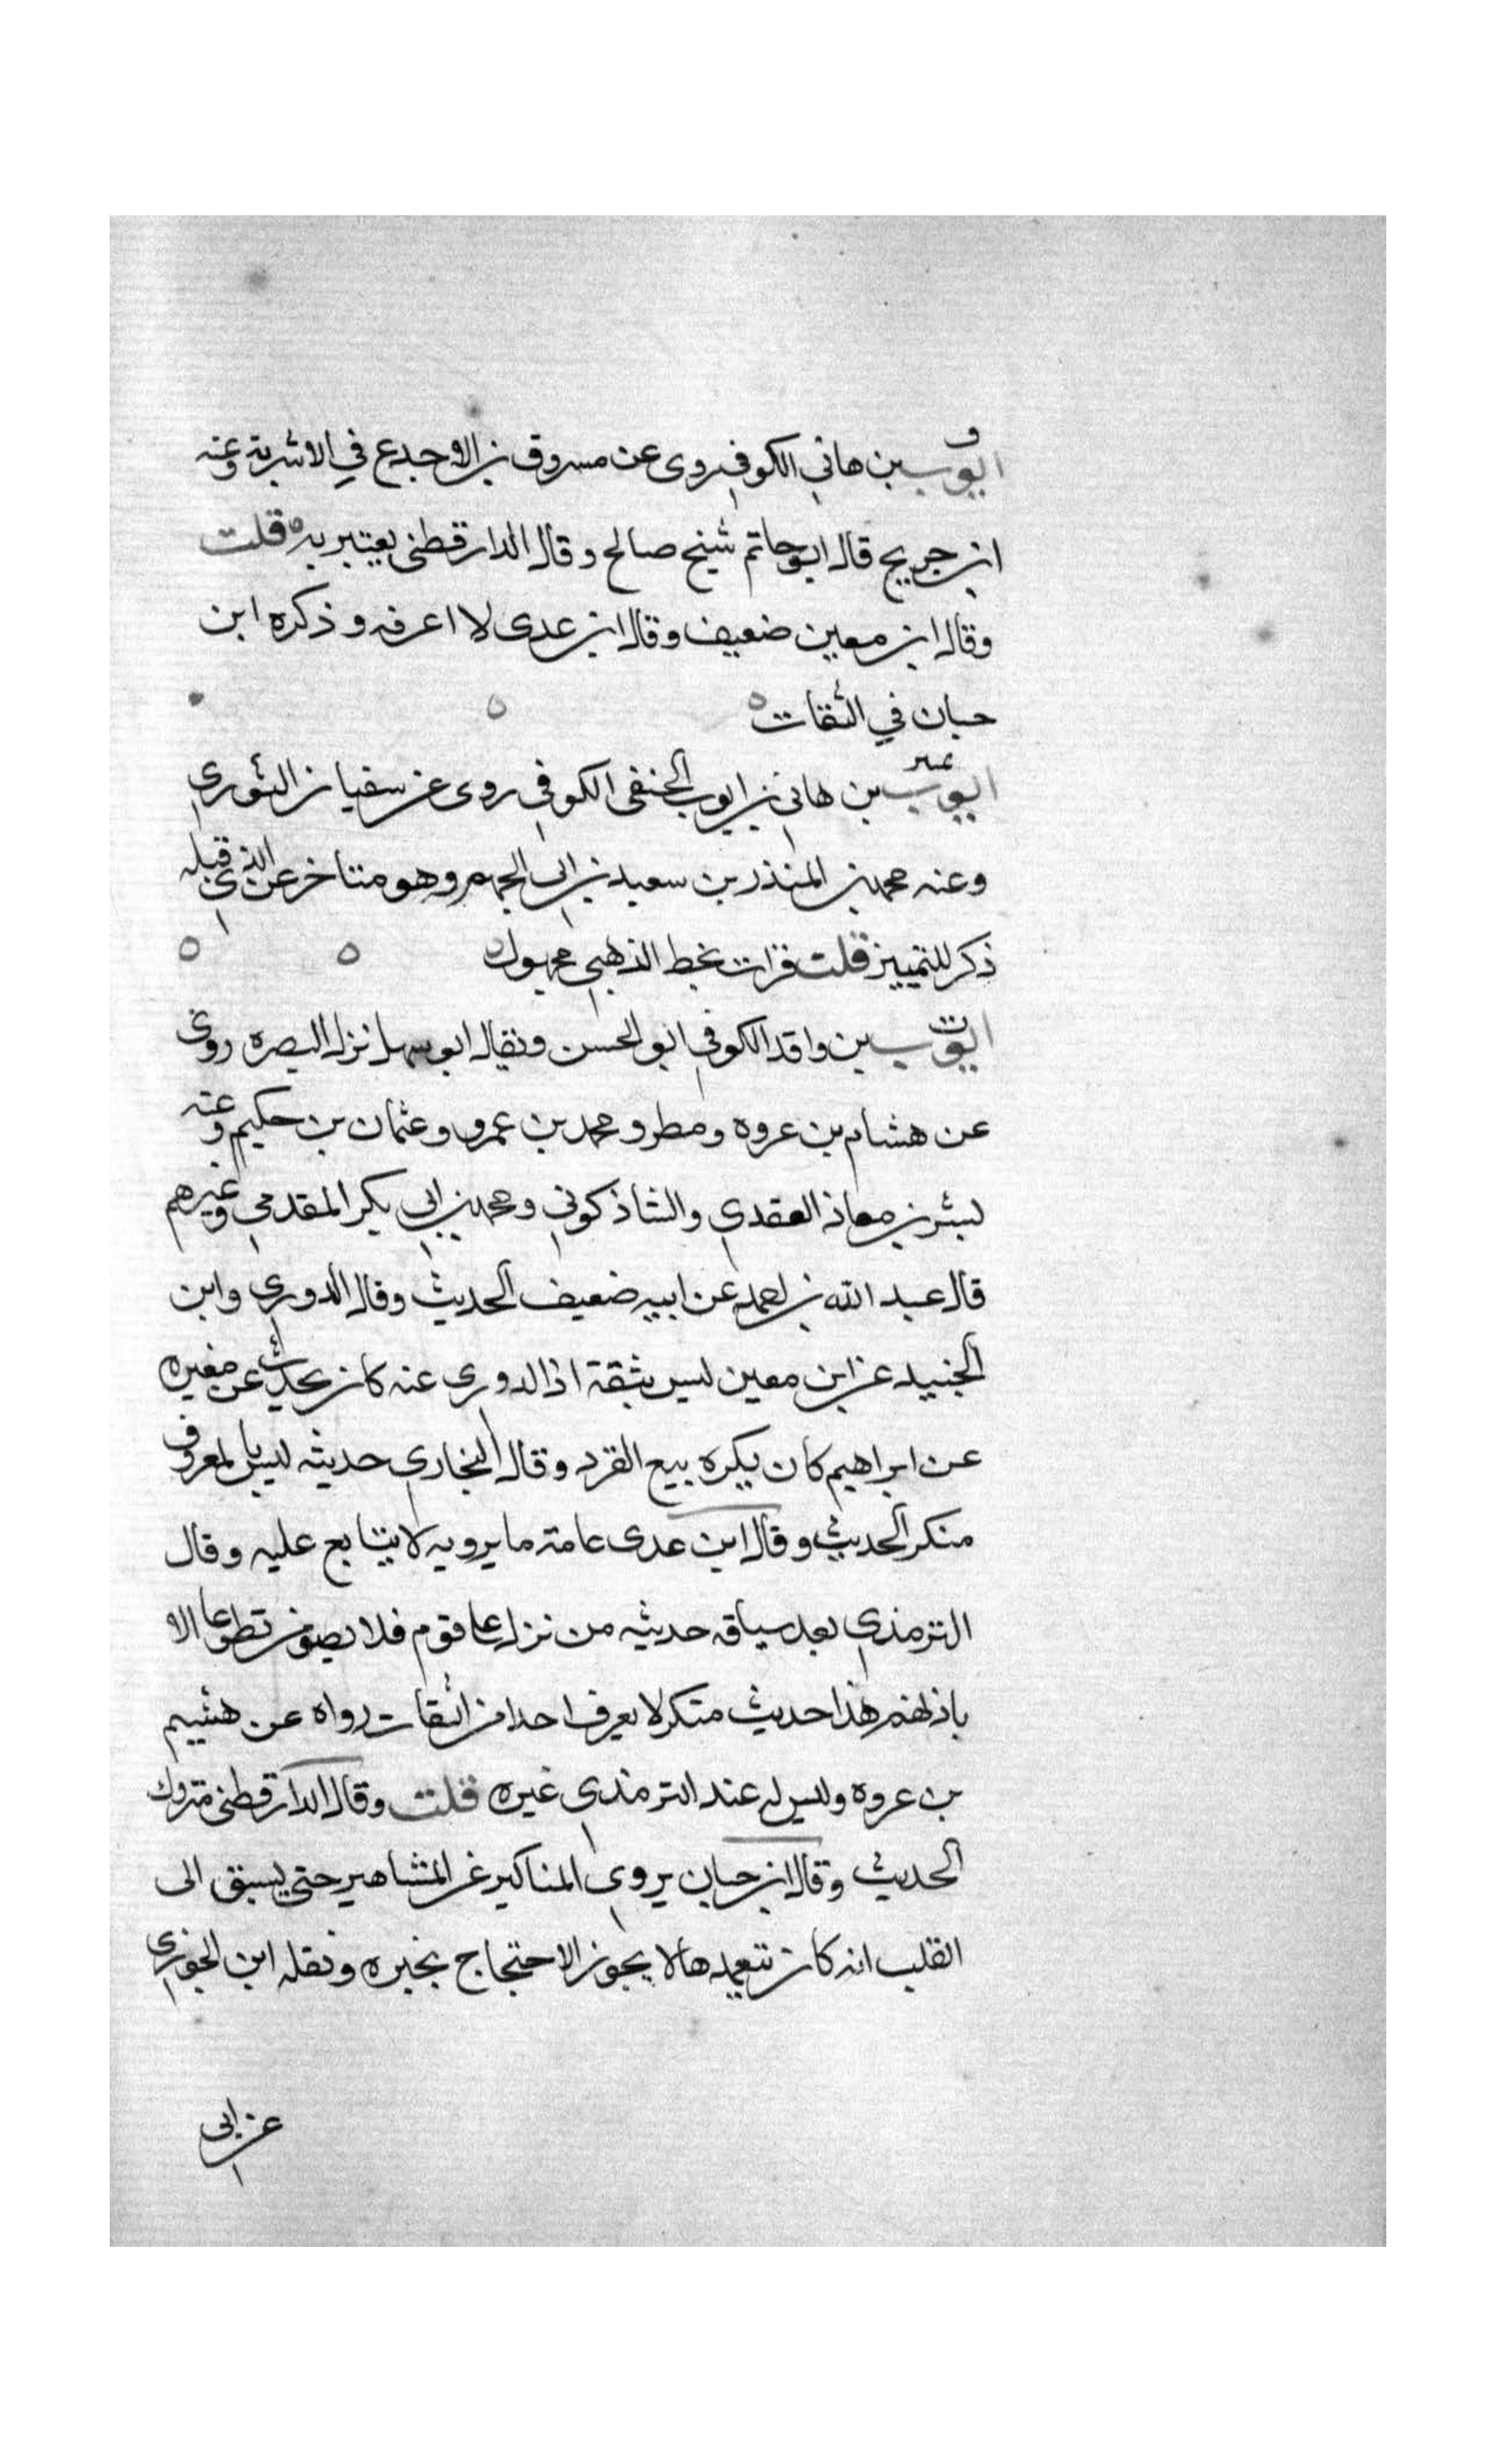 ق
ايوب بن هاني الكوفي روى عن مسروق بن الاجدع في الاشربة وعنه
ابن جريج قال ابو حاتم شيخ صالح وقال الدارقطنى يعتبر به قلت
وقال ابن معين ضعيف وقال ابن عدى لا اعرفه وذكره ابن
حبان في الثقات
تمييز
ايوب بن هاني بن ايوب الحنفى الكوفي روى عن سفيان الثوري
وعنه محمد بن المنذر بن سعيد بن ابى الجهم وهو متاخر عن الذي قبله
ذكر للتمييز قلت قرات بخط الذهبي مجهول
ت
ايوب بن واقد الكوفي ابو الحسن ويقال ابو سهل نزل البصره روى
عن هشام بن عروه ومطر ومحمد بن عمرو وعثمان بن حكيم وعنه
بشر بن معاذ العقدي والشاذكوني ومحمد بن ابي بكر المقدمي وغيرهم
قال عبد الله بن احمد عن ابيه ضعيف الحديث وقال الدوري وابن
الجنيد عن ابن معين ليس بثقة اذا الدوري عنه كان يحدث عن مغيره
عن ابراهيم كان يكره بيع القرد وقال البخاري حديثه ليس بالمعروف
منكر الحديث وقال ابن عدى عامة ما يرويه لا يتابع عليه وقال
الترمذي بعد سياقه حديثه من نزل على قوم فلا يصومن تطوعا الا
باذنهم هذا حديث منكر لا يعرف احدا من الثقات رواه عن هشيم
بن عروه وليس له عند الترمذي غيره قلت وقال الدارقطنى متروك
الحديث وقال ابن حبان يروي المناكير عن المشاهير حتى يسبق الى
القلب انه كان يتعمدها لا يجوز الاحتجاج بخبره ونقله ابن الجوزي
عن ابى